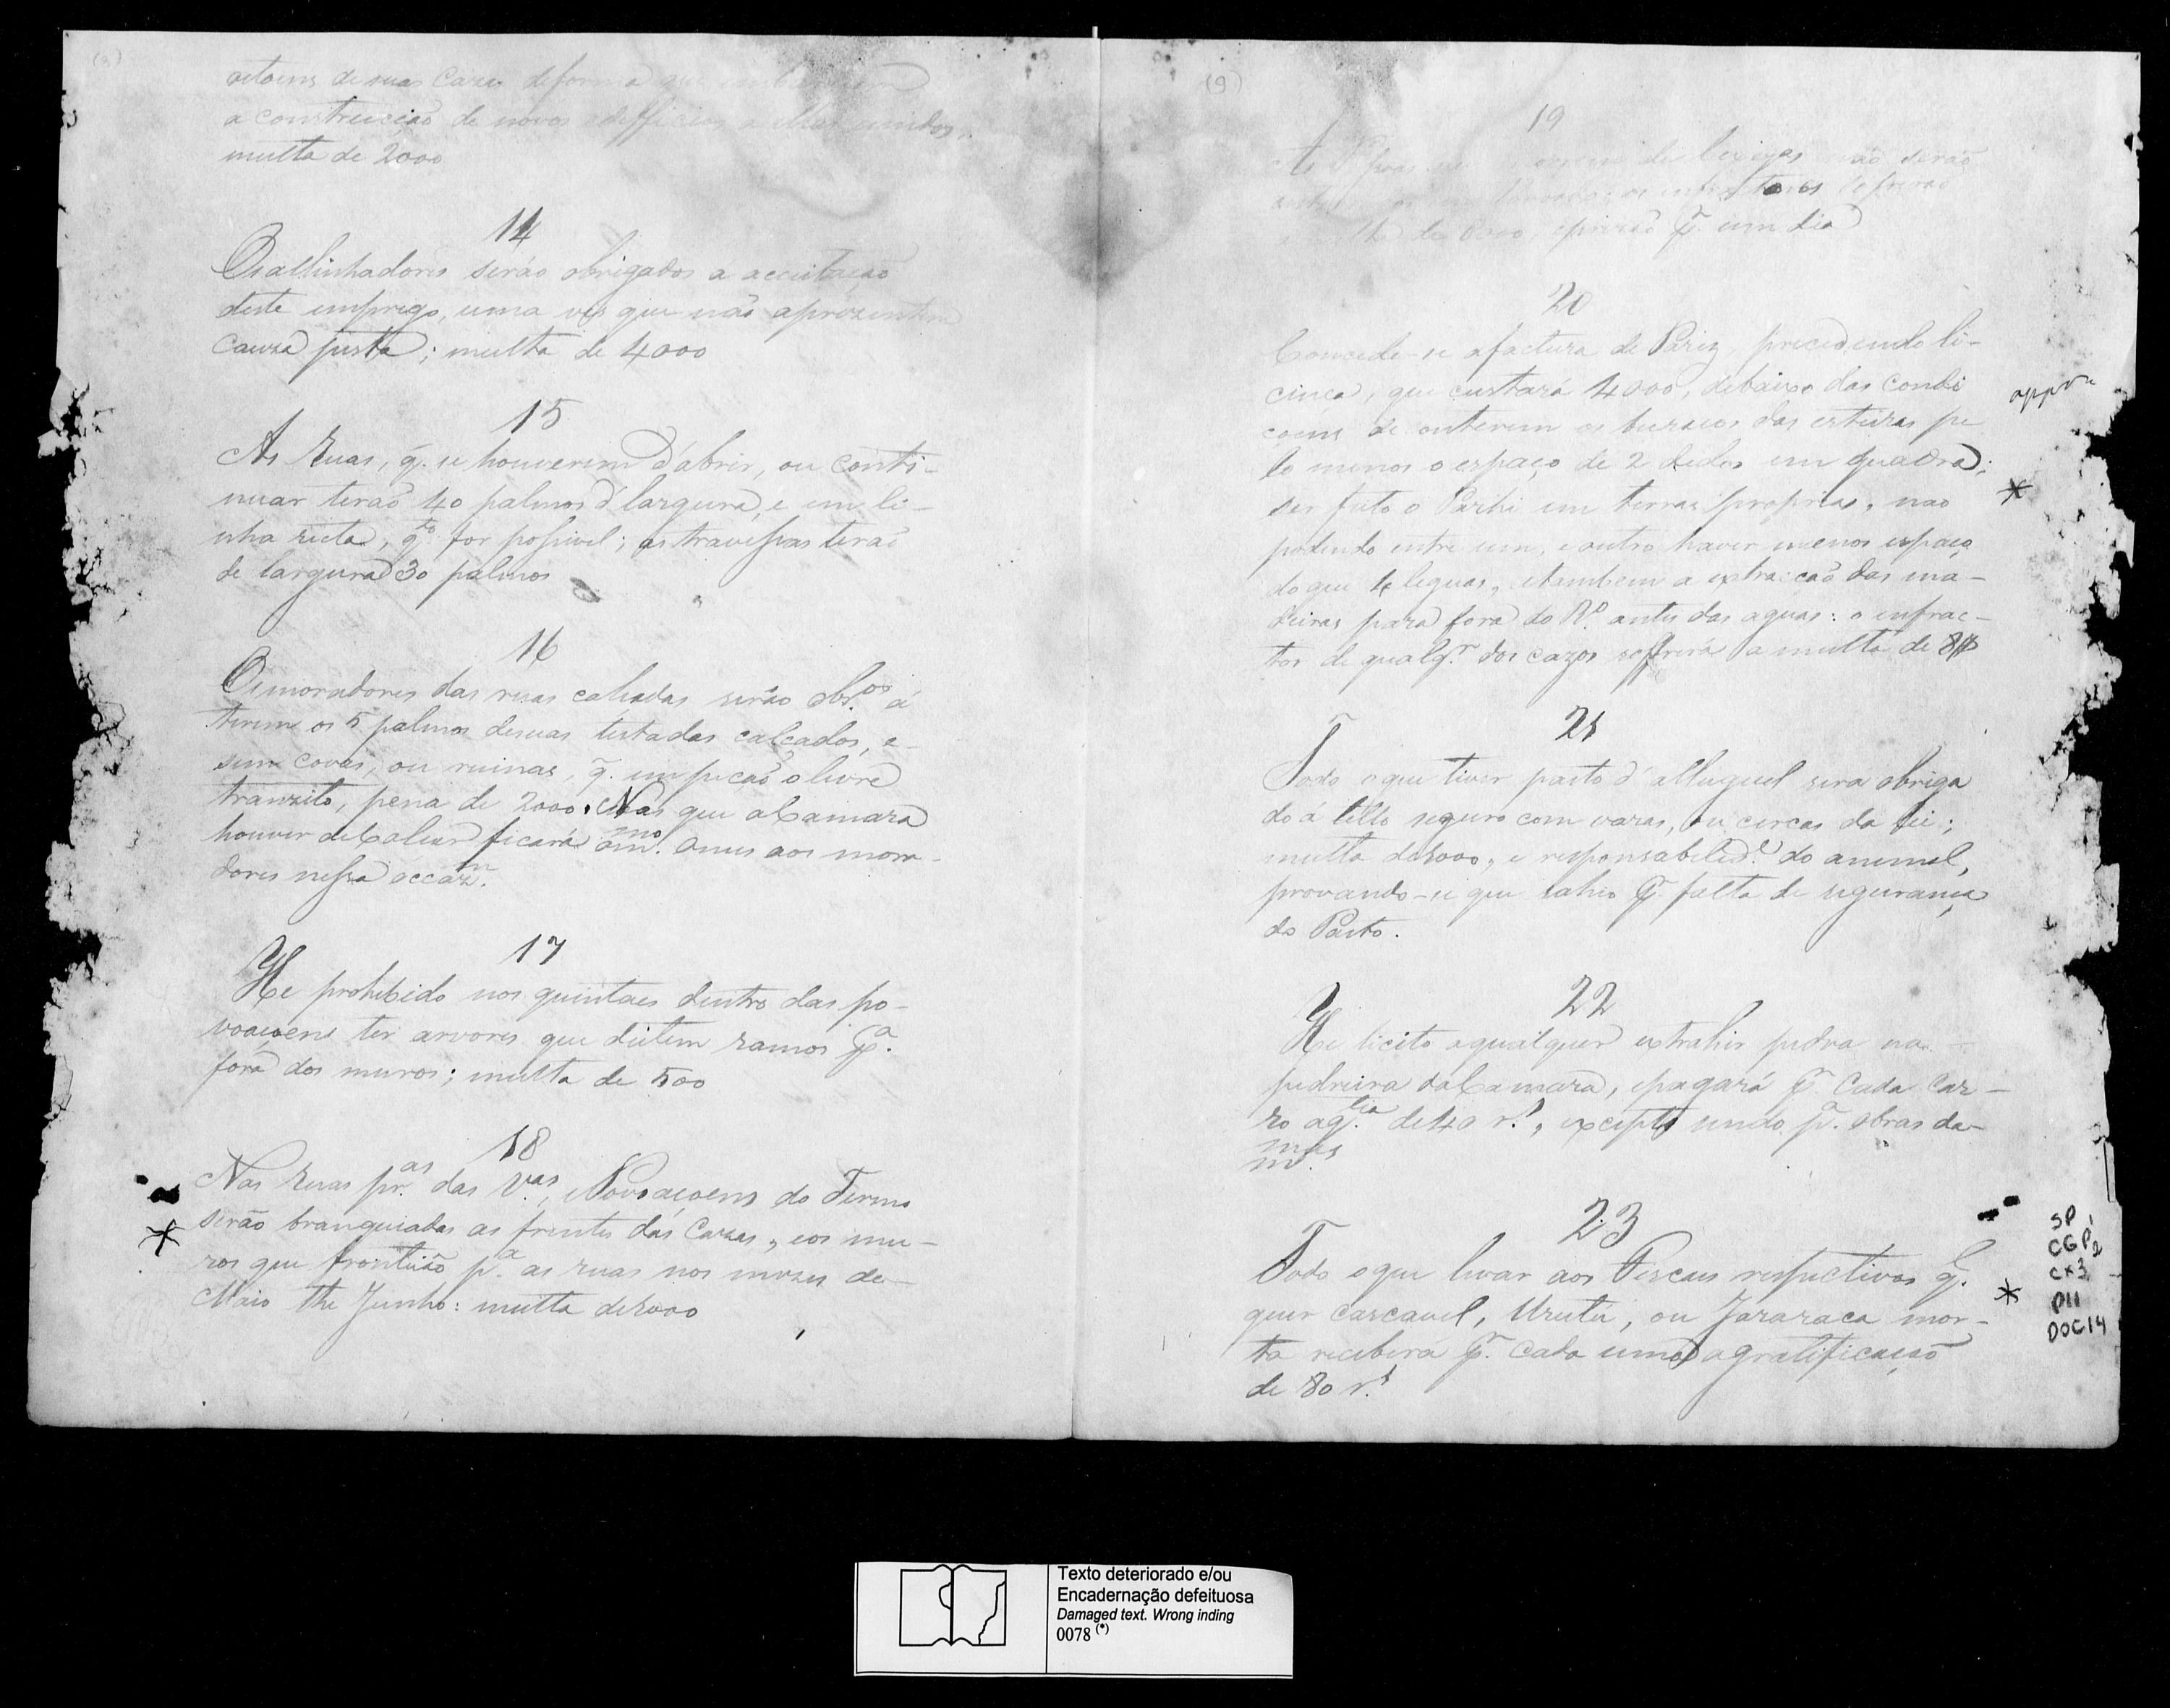 (8)
oitoens de suas Cazas deforma que
a construcção de novos edifficios
multa de 2000
14
Os allinhadores serão obrigados a acceitação
deste emprego, uma vez que não aprezentem
Cauza justa; multa de 4000
15
As Ruas, q̃. se houverem d'abrir, ou conti-
nuar terão 40 palmos d'largura, e em li-
nha recta, q.to for possivel; as travessas terão
de largura 30 palmos
16
Os moradores das ruas calçadas serão obr.os á
terem os 5 palmos desuas testadas calçados, e
sem covas, ou ruinas, q̃. impeção o livre
tranzito, pena de 2000. Nas que a Camara
houver de Calçar ficará o m.mo onus aos mora-
dores nessa occaz.m
17
He prohibido nos quintaes dentro das po-
voaçoens ter arvores que deitem ramos p.a
fora dos muros; multa de 500
18
Nas Ruas pr.as das V.as, e Povoaçoens do Termo
serão branquiadas as frentes das Cazas, e os mu-
ros que fronteião p.a as ruas nos mezes de
Maio the Junho: multa de 2000
(9)
19
As de bexigas não serão
os infractores sofrerão
e prizão p̃. um dia
20
Concede-se a factura de Pariz, precedendo li-
cinca, que custará 4000, debaixo das condi
coens de conterem os buracos das esteiras pe
lo menos o espaço de 2 dedos em quadra;
ser feito o Parhi em terras proprias, nao
podendo entre um, e outro haver menos espaço
do que leguas, e tambem a extracção das ma-
deiras para fora do R.o antes das aguas: o infrac-
tor de qualq.r dos cazos soffrerá a multa de 8$
appr
*
21
Todo o que tiver pasto d'alluguel sera obriga
do a tello seguro com varas, ou cercas da lei;
multa de 2000, e responsabelid.e do animal,
provando-se que sahio p̃. falta de segurança
do Pasto.
22
He licito a qualquer extrahir pedra na
pedreira da Camara, e pagará p̃. Cada Car-
ro a q.tia de 40 r.s, excepto sendo p.a obras da
m.mas
23
Todo o que levar aos Fiscaes respectivos q̃.
quer cascavel, Urutú, ou Jararaca mor-
ta receberá p̃. Cada uma a gratificação
de 80 r.s
*
SP 1
CGP 2
CX3,
P11
DOC14
Texto deteriorado e/ou
Encadernação defeituosa
Damaged text. Wrong inding
0078 (*)